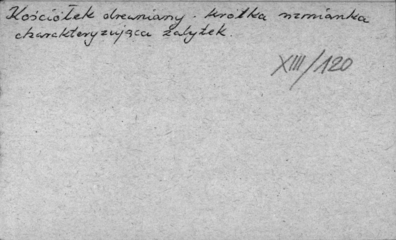 Kościółek drewniany. krótka wzmianka
charakteryzująca zabytek.
XIII/120